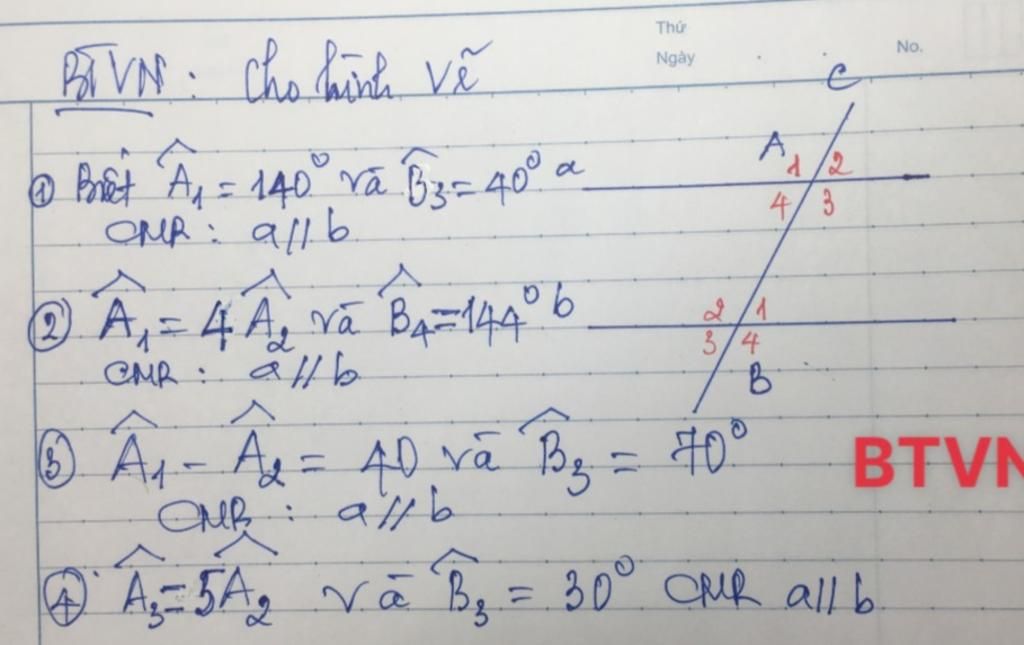 Thứ
Ngày
No.
BTVN: Cho hình vẽ
① Biết Â₁ = 140° và B̂₃ = 40°
CMR: a//b
② Â₁ = 4Â₂ và B̂₄ = 144°
CMR: a//b
③ Â₁ - Â₂ = 40 và B̂₃ = 70°
CMR: a//b
④ Â₃ = 5Â₂ và B̂₃ = 30° CMR a//b
c
A 1 2
a
4 3
b
2 1
3 4
B
BTVN